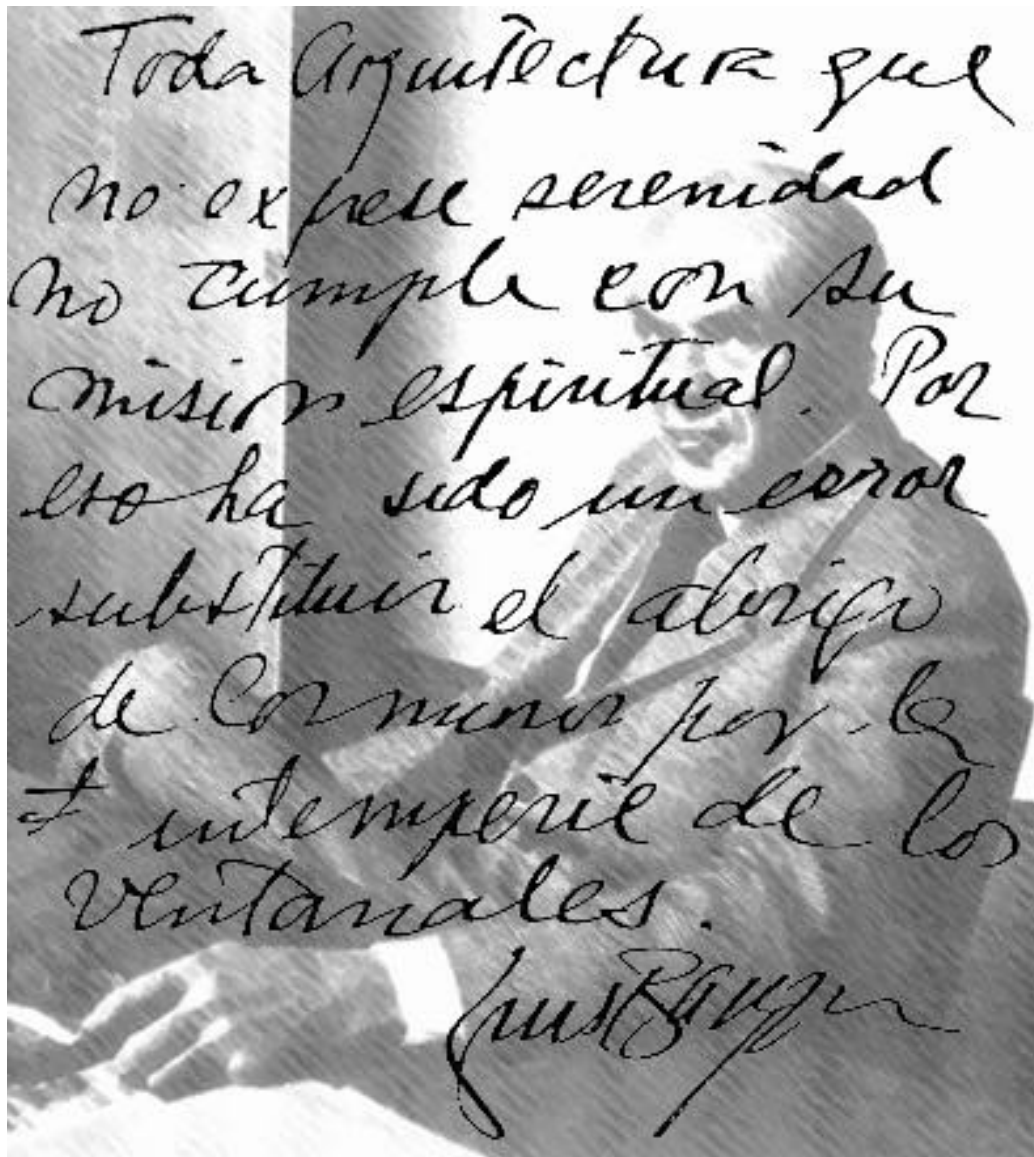 Toda Arquitectura que
no exprese serenidad
no cumple con su
mision espiritual. Por
eso ha sido un error
substituir el abrigo
de los muros por la
intemperie de los
ventanales.
Luis Barragan